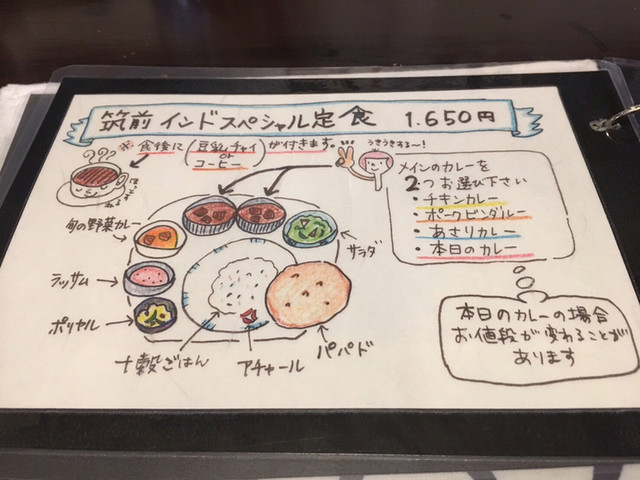 筑前 インドスペシャル定食 1.650円
※食後に(豆乳チャイ or コーヒー)が付きます。
うきうきする〜!
メインのカレーを
2つお選び下さい
・チキンカレー
・ポークビンダルー
・あさりカレー
・本日のカレー
旬の野菜カレー
サラダ
ラッサム
ポリヤル
十穀ごはん
アチャール
パパド
本日のカレーの場合
お値段が変わることが
あります